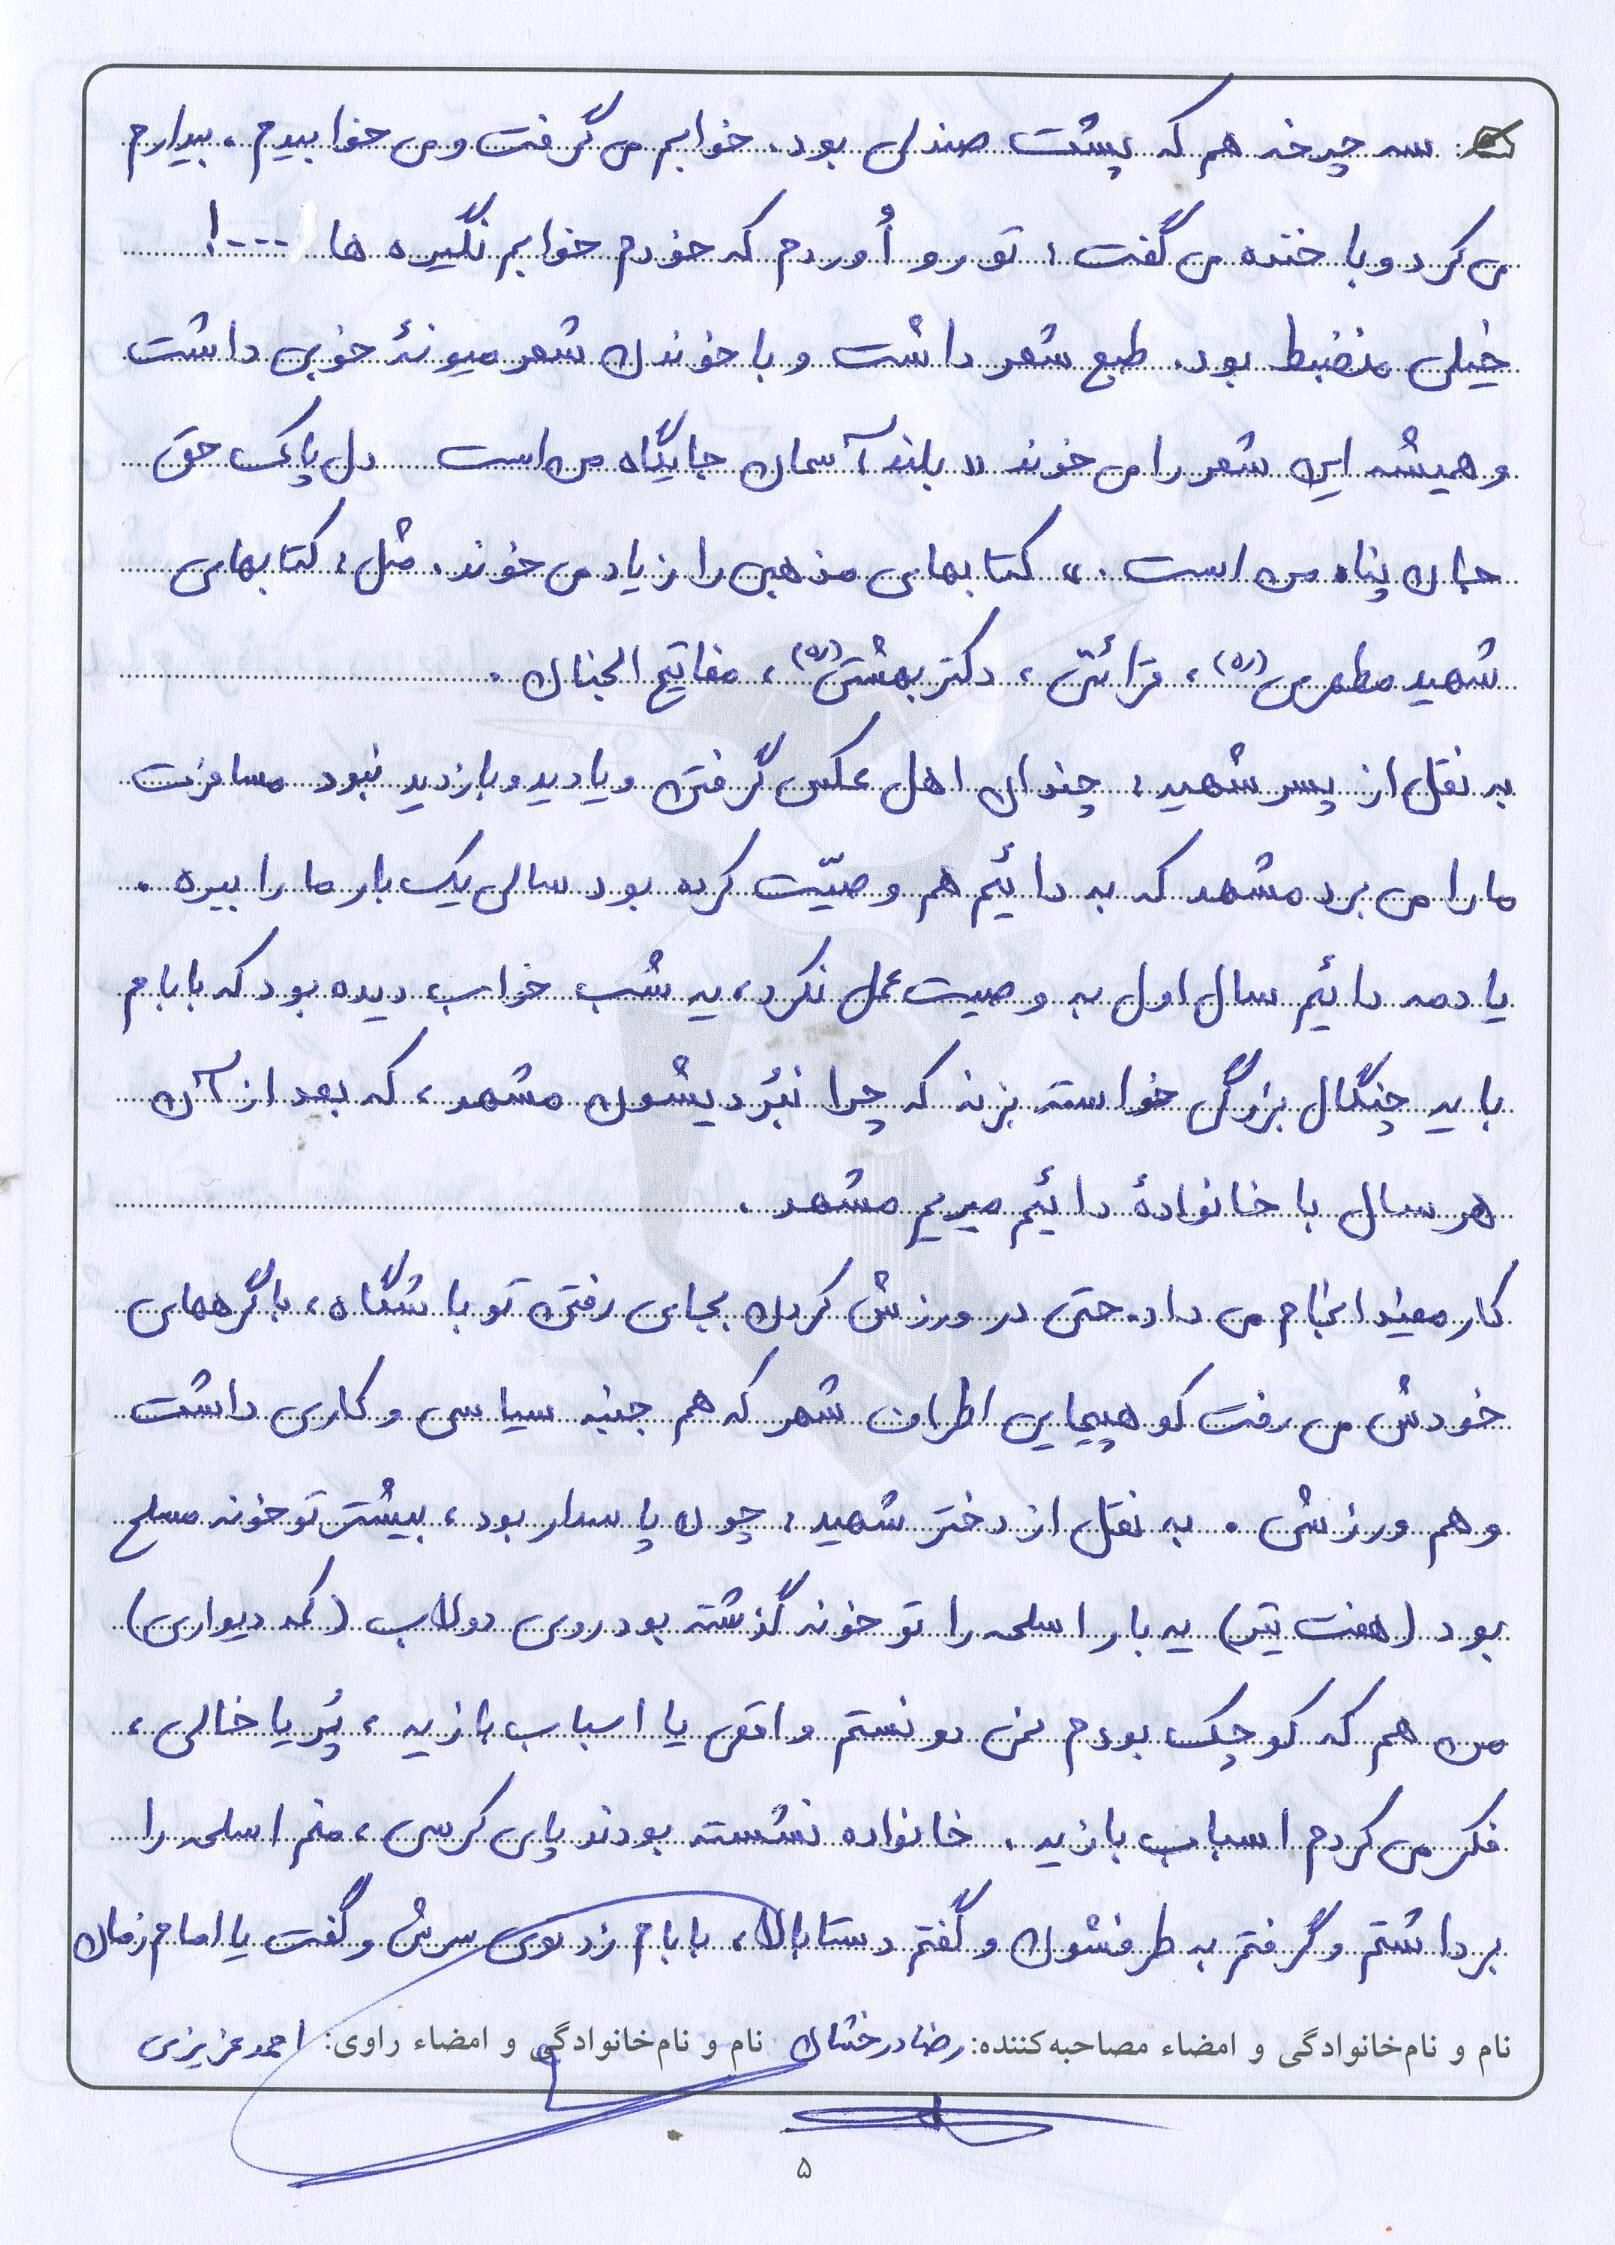 سه چرخه هم که پشت صندلی بود. خوابم می گرفت و می خوابیدم، بیدارم
می کرد و با خنده می گفت: تو رو اُوردم که خودم خوابم نگیره ها ....!
خیلی منضبط بود. طبع شعر داشت و با خوندن شعر میونهٔ خوبی داشت
و همیشه این شعر را می خوند «بلند آسمان جایگاه من است   دل پاک حق
جان پناه من است.» کتابهای مذهبی را زیاد می خوند. مثل: کتابهای
شهید مطهری (ره)، قرائتی، دکتر بهشتی (ره)، مفاتیح الجنان.
به نقل از پسر شهید: چندان اهل عکس گرفتن و یا دید و بازدید نبود مسافرت
ما را می برد مشهد که به دائیم هم وصیّت کرده بود سالی یک بار ما را ببره.
یادمه دائیم سال اول به وصیت عمل نکرد، یه شب خواب دیده بود که بابام
با یه چنگال بزرگی خواسته بزنه که چرا نبُردیشون مشهد، که بعد از آن
هر سال با خانوادهٔ دائیم میریم مشهد.
کار مفید انجام می داد. حتی در ورزش کردن بجای رفتن تو باشگاه، با گرههای
خودش می رفت کوهپیمایی اطراف شهر که هم جنبه سیاسی و کاری داشت
و هم ورزشی. به نقل از دختر شهید: چون پاسدار بود، بیشتر تو خونه مسلح
بود (هفت تیر) یه بار اسلحه را تو خونه گذشته بود روی دولاب (کمد دیواری)
من هم که کوچک بودم نمی دونستم واقعی یا اسباب بازیه، پُر یا خالی،
فکر می کردم اسباب بازیه. خانواده نشسته بودند پای کرسی، منم اسلحه را
برداشتم و گرفتم به طرفشون و گفتم دستا بالا، بابام زد توی سرش و گفت یا امام زمان
نام و نام‌خانوادگی و امضاء مصاحبه‌کننده: رضا درخشان نام و نام‌خانوادگی و امضاء راوی: احمد عزیزی
۵